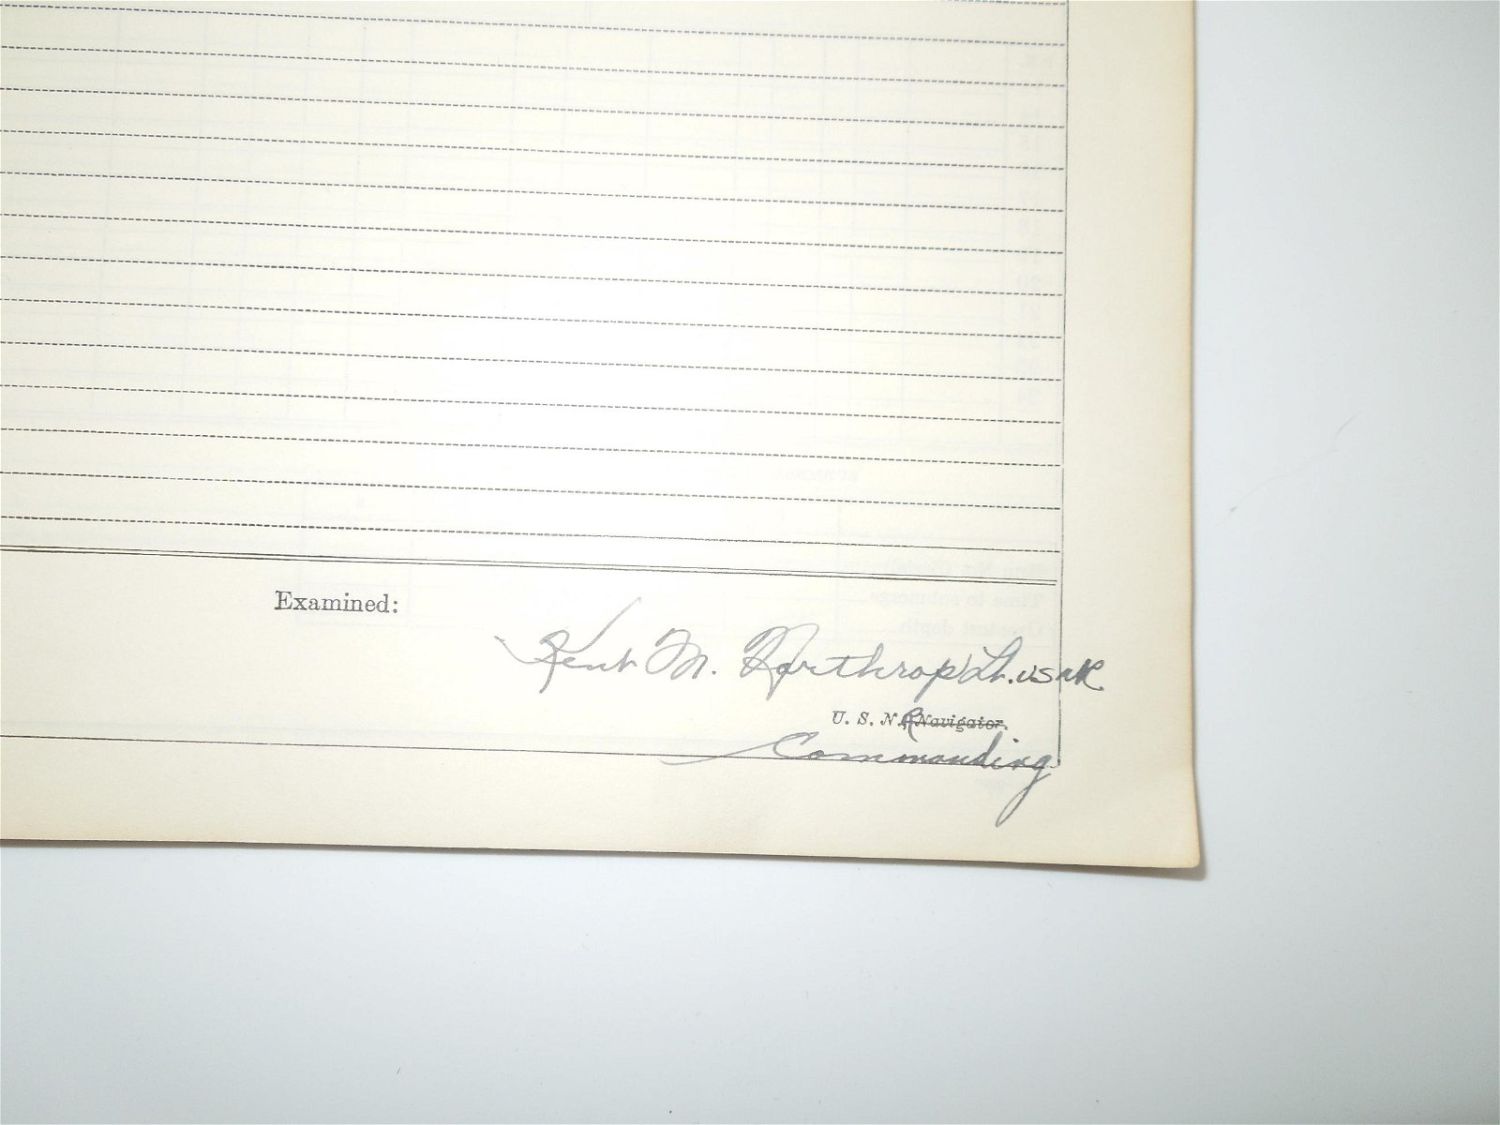 Examined:
Kent M. Northrop Lt. USNR
U. S. N. R Navigator.
Commanding